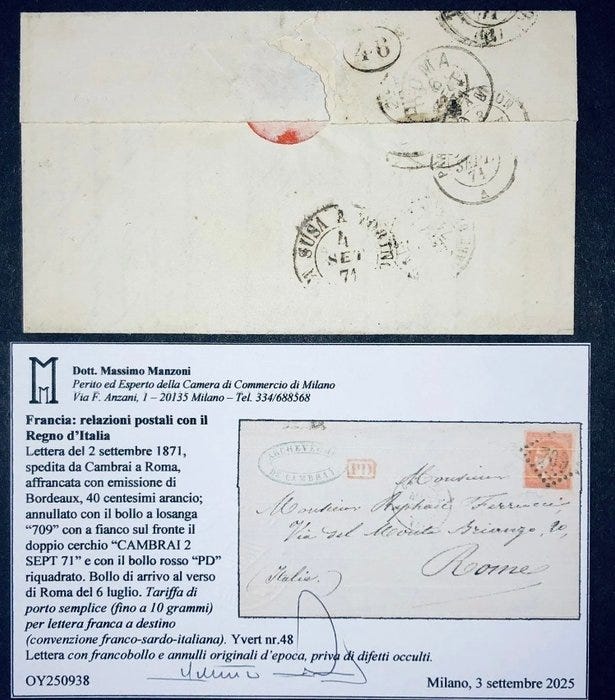 46
ROMA
SEPT.
71
DA SUSA A TORINO
4
SET
71
Dott. Massimo Manzoni
Perito ed Esperto della Camera di Commercio di Milano
Via F. Anzani, 1 – 20135 Milano – Tel. 334/688568
Francia: relazioni postali con il
Regno d'Italia
Lettera del 2 settembre 1871,
spedita da Cambrai a Roma,
affrancata con emissione di
Bordeaux, 40 centesimi arancio;
annullato con il bollo a losanga
"709" con a fianco sul fronte il
doppio cerchio "CAMBRAI 2
SEPT 71" e con il bollo rosso "PD"
riquadrato. Bollo di arrivo al verso
di Roma del 6 luglio. Tariffa di
porto semplice (fino a 10 grammi)
per lettera franca a destino
(convenzione franco-sardo-italiana). Yvert nr.48
Lettera con francobollo e annulli originali d'epoca, priva di difetti occulti.
OY250938
Milano, 3 settembre 2025
ARCHEVÊCHÉ
DE CAMBRAI
PD
709
Monsieur
Monsieur Raphael Ferrucci
Via del Monte Brianzo, 20,
Rome
(Italie)